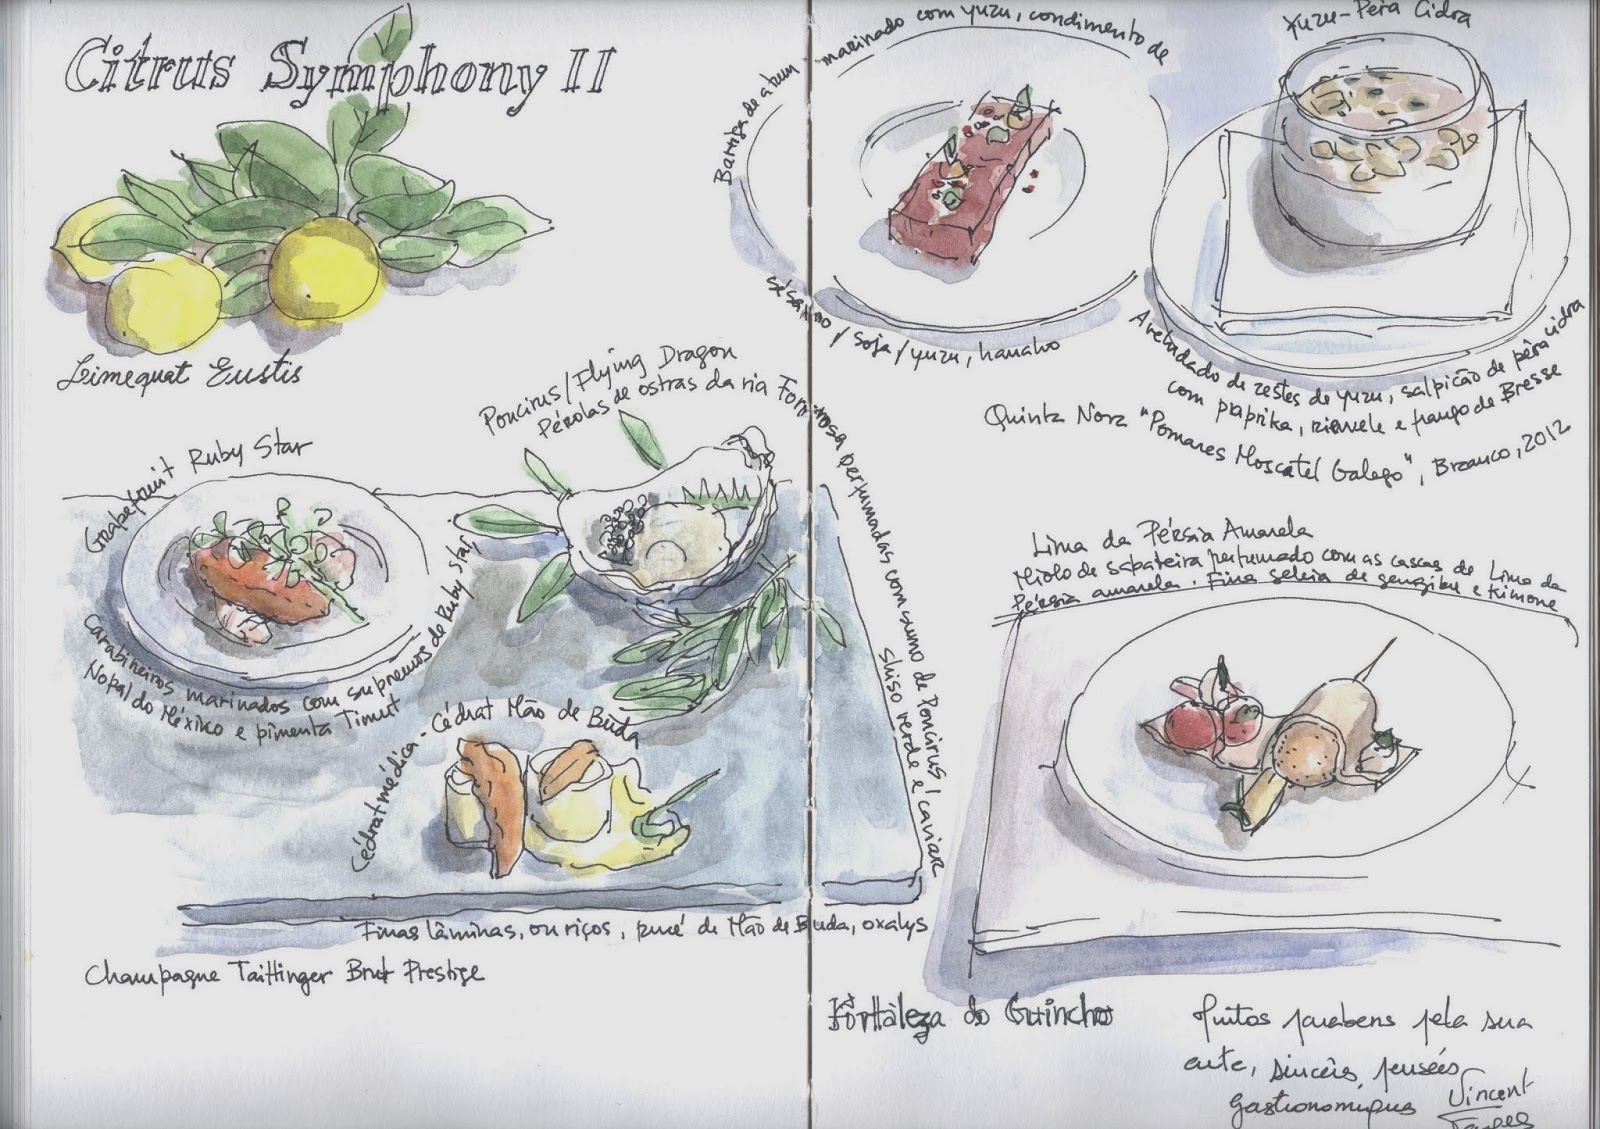 Citrus Symphony II
Limequat Eustis
Grapefruit Ruby Star
Carabineiros marinados com suprêmos de Ruby Star,
Nopal do México e pimenta Timut
Poncirus/Flying Dragon
Pérolas de ostras da ria Formosa perfumadas com sumo de Poncirus,
shiso verde e caviar
Cédrat médica - Cédrat Mão de Buda
Finas lâminas, ouriços, puré de Mão de Buda, oxalys
Champagne Taittinger Brut Prestige
Barriga de atum marinado com yuzu, condimento de
sésamo / soja / yuzu, hanaho
Yuzu-Pêra Cidra
Aveludado de zestes de yuzu, salpicão de pêra cidra
com paprika, e frango de Bresse
Quinta Nova "Pomares Moscatel Galego", Branco, 2012
Lima da Pérsia Amarela
Miolo de sapateira perfumado com as cascas de Lima da
Pérsia amarela. Fina geleia de gengibre e kimone
Fortaleza do Guincho
Muitos parabens pela sua
arte, sincères pensées
gastronomiques Vincent